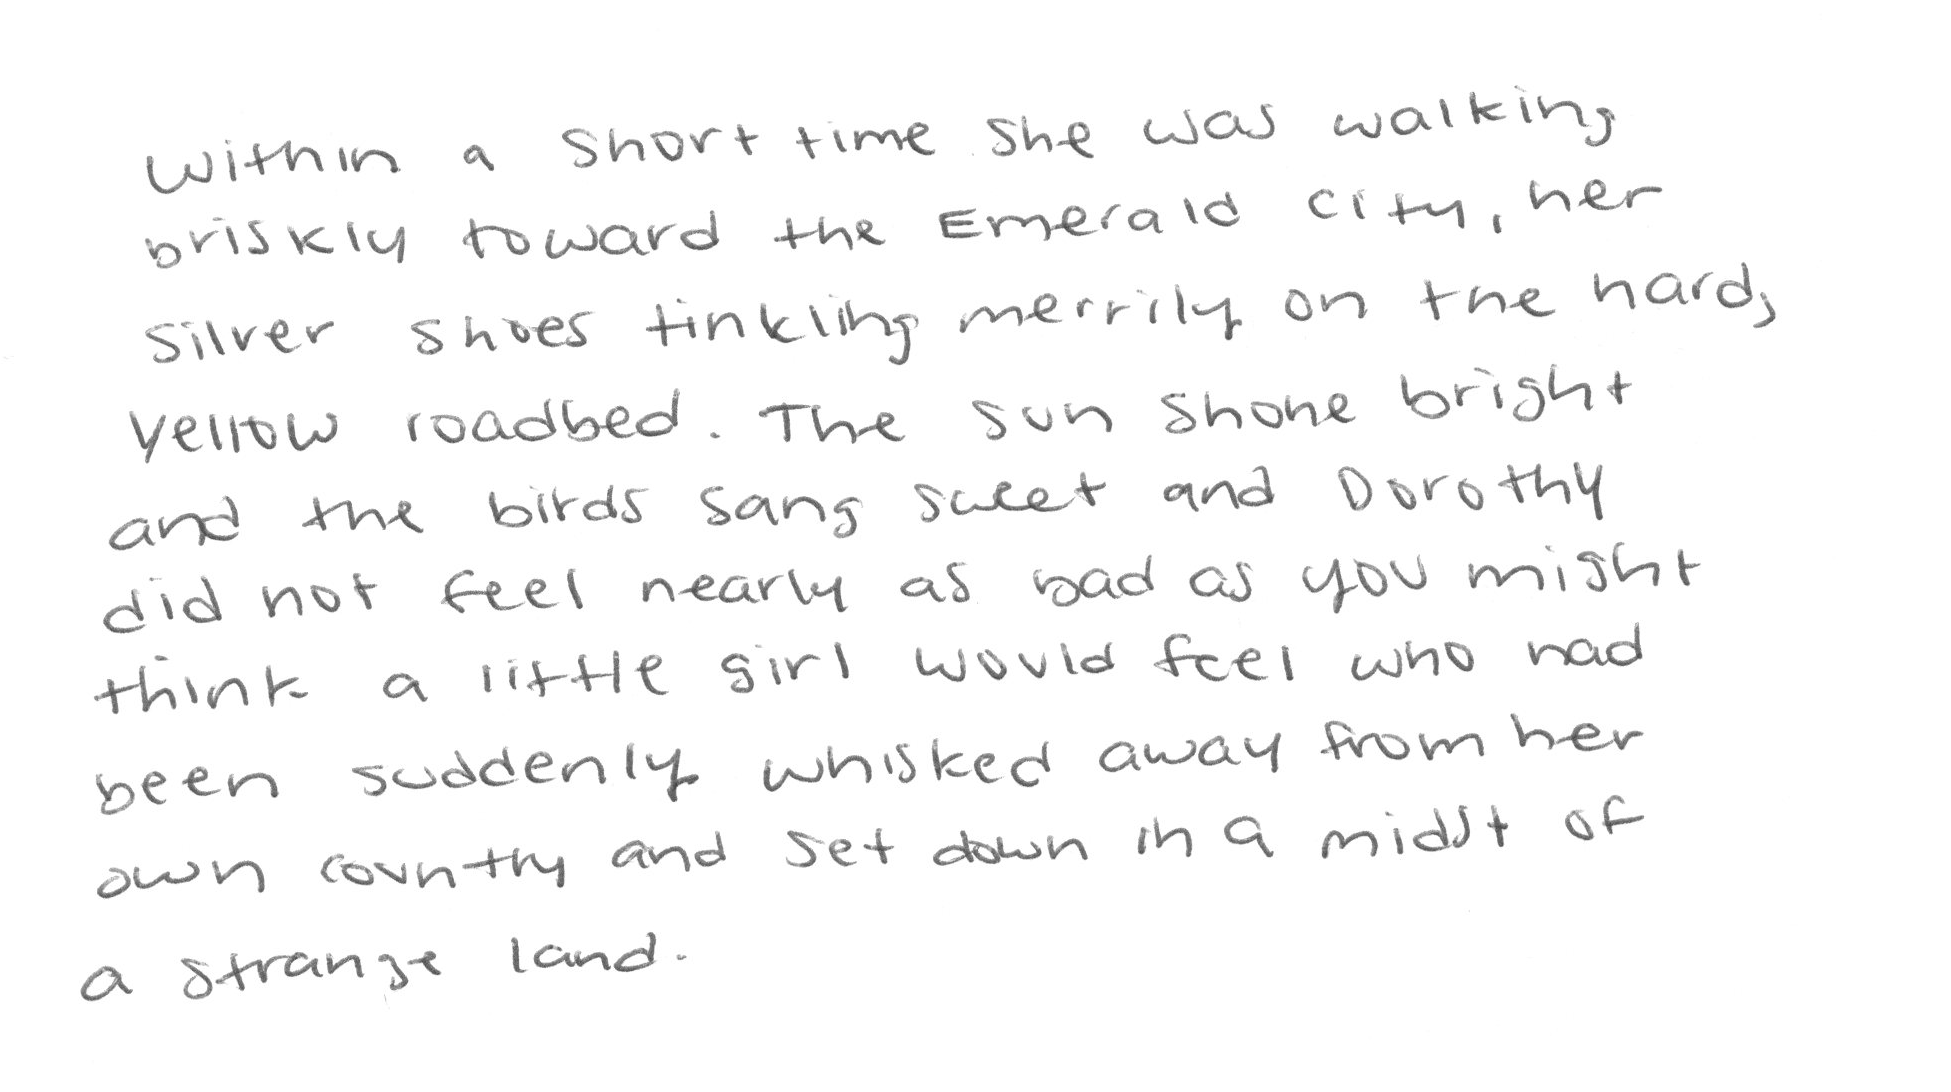 Within a short time she was walking
briskly toward the Emerald City, her
silver shoes tinkling merrily on the hard,
yellow roadbed. The sun shone bright
and the birds sang sweet and Dorothy
did not feel nearly as bad as you might
think a little girl would feel who had
been suddenly whisked away from her
own country and set down in a midst of
a strange land.